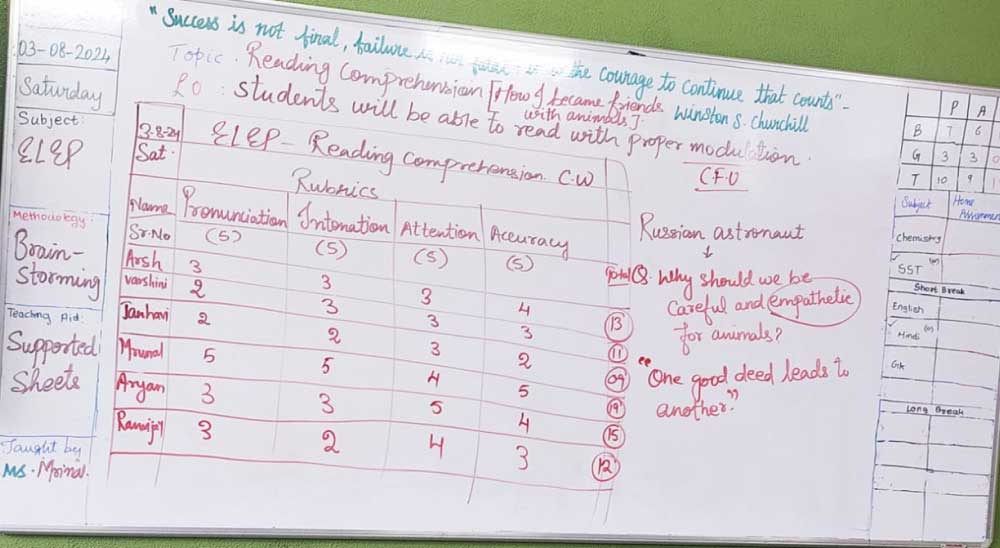 "Success is not final, failure is not fatal: it is the courage to continue that counts" -
Winston S. Churchill
03-08-2024
Saturday
Subject:
ELEP
Methodology:
Brain-
Storming
Teaching Aid:
Supported
Sheets
Taught by
Ms. Mrinal.
Topic. Reading Comprehension [How I became friends
with animals].
LO : Students will be able to read with proper modulation.
CFU
3-8-24
Sat.
ELEP - Reading Comprehension. C.W
Rubrics
Name Pronunciation Intonation Attention Accuracy
Sr.No (5) (5) (5) (5) Total
Arsh 3 3 3 4 13
Varshini 2 3 3 3 11
Janhavi 2 2 3 2 09
Mrunal 5 5 4 5 19
Aryan 3 3 5 4 15
Ranvijay 3 2 4 3 12
Russian astronaut
↓
Q. Why should we be
careful and empathetic
for animals?
"One good deed leads to
another."
P A
B 7 6
G 3 3
T 10 9
Subject Home
Chemistry
SST
Short Break
English
Hindi
GK
Long Break